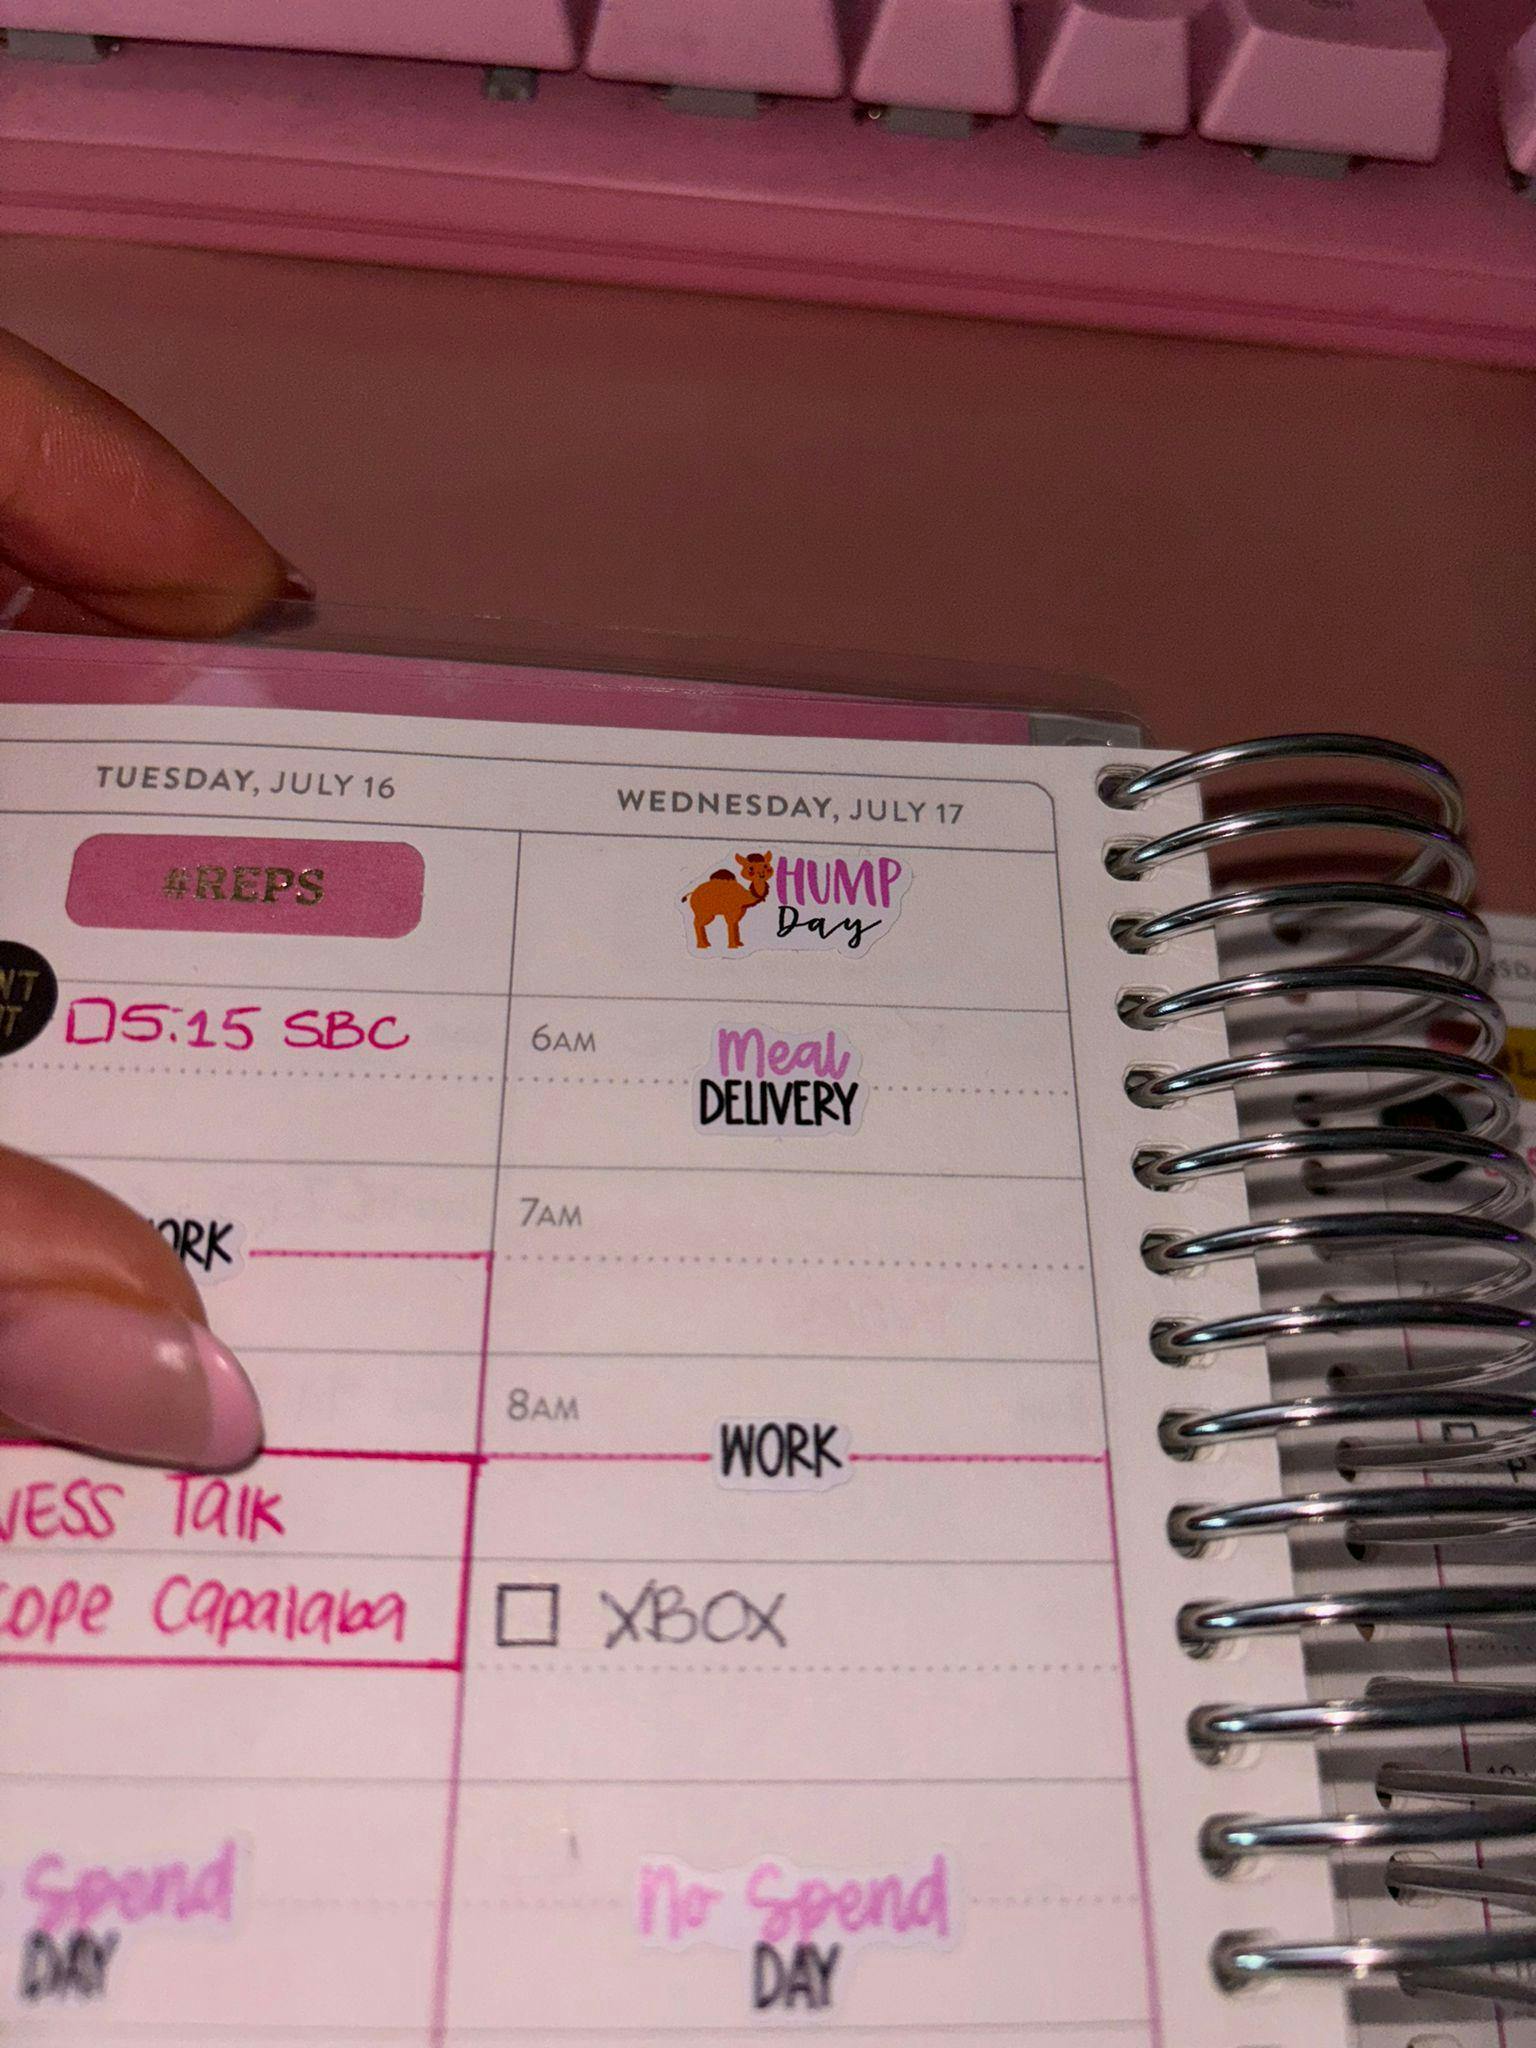 TUESDAY, JULY 16
#REPS
☐5:15 SBC
Talk
Capalaba
Spend
DAY
WEDNESDAY, JULY 17
HUMP
Day
6AM
Meal
DELIVERY
7AM
8AM
WORK
☐ XBOX
No Spend
DAY